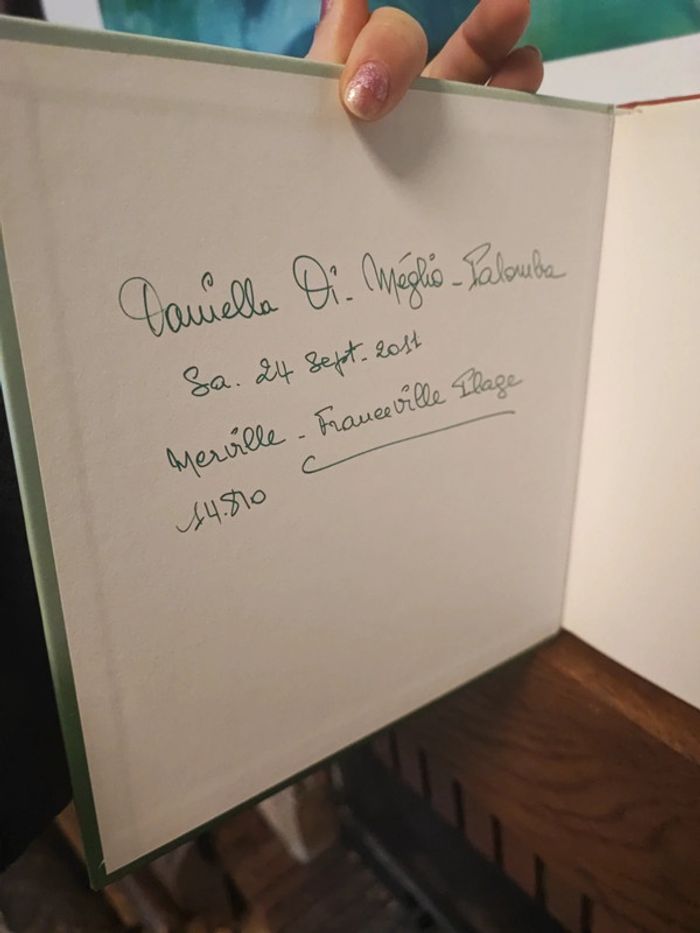 Daniella Di-Méglio-Palomba
Sa. 24 Sept. 2011
Merville-Franceville Plage
14.810